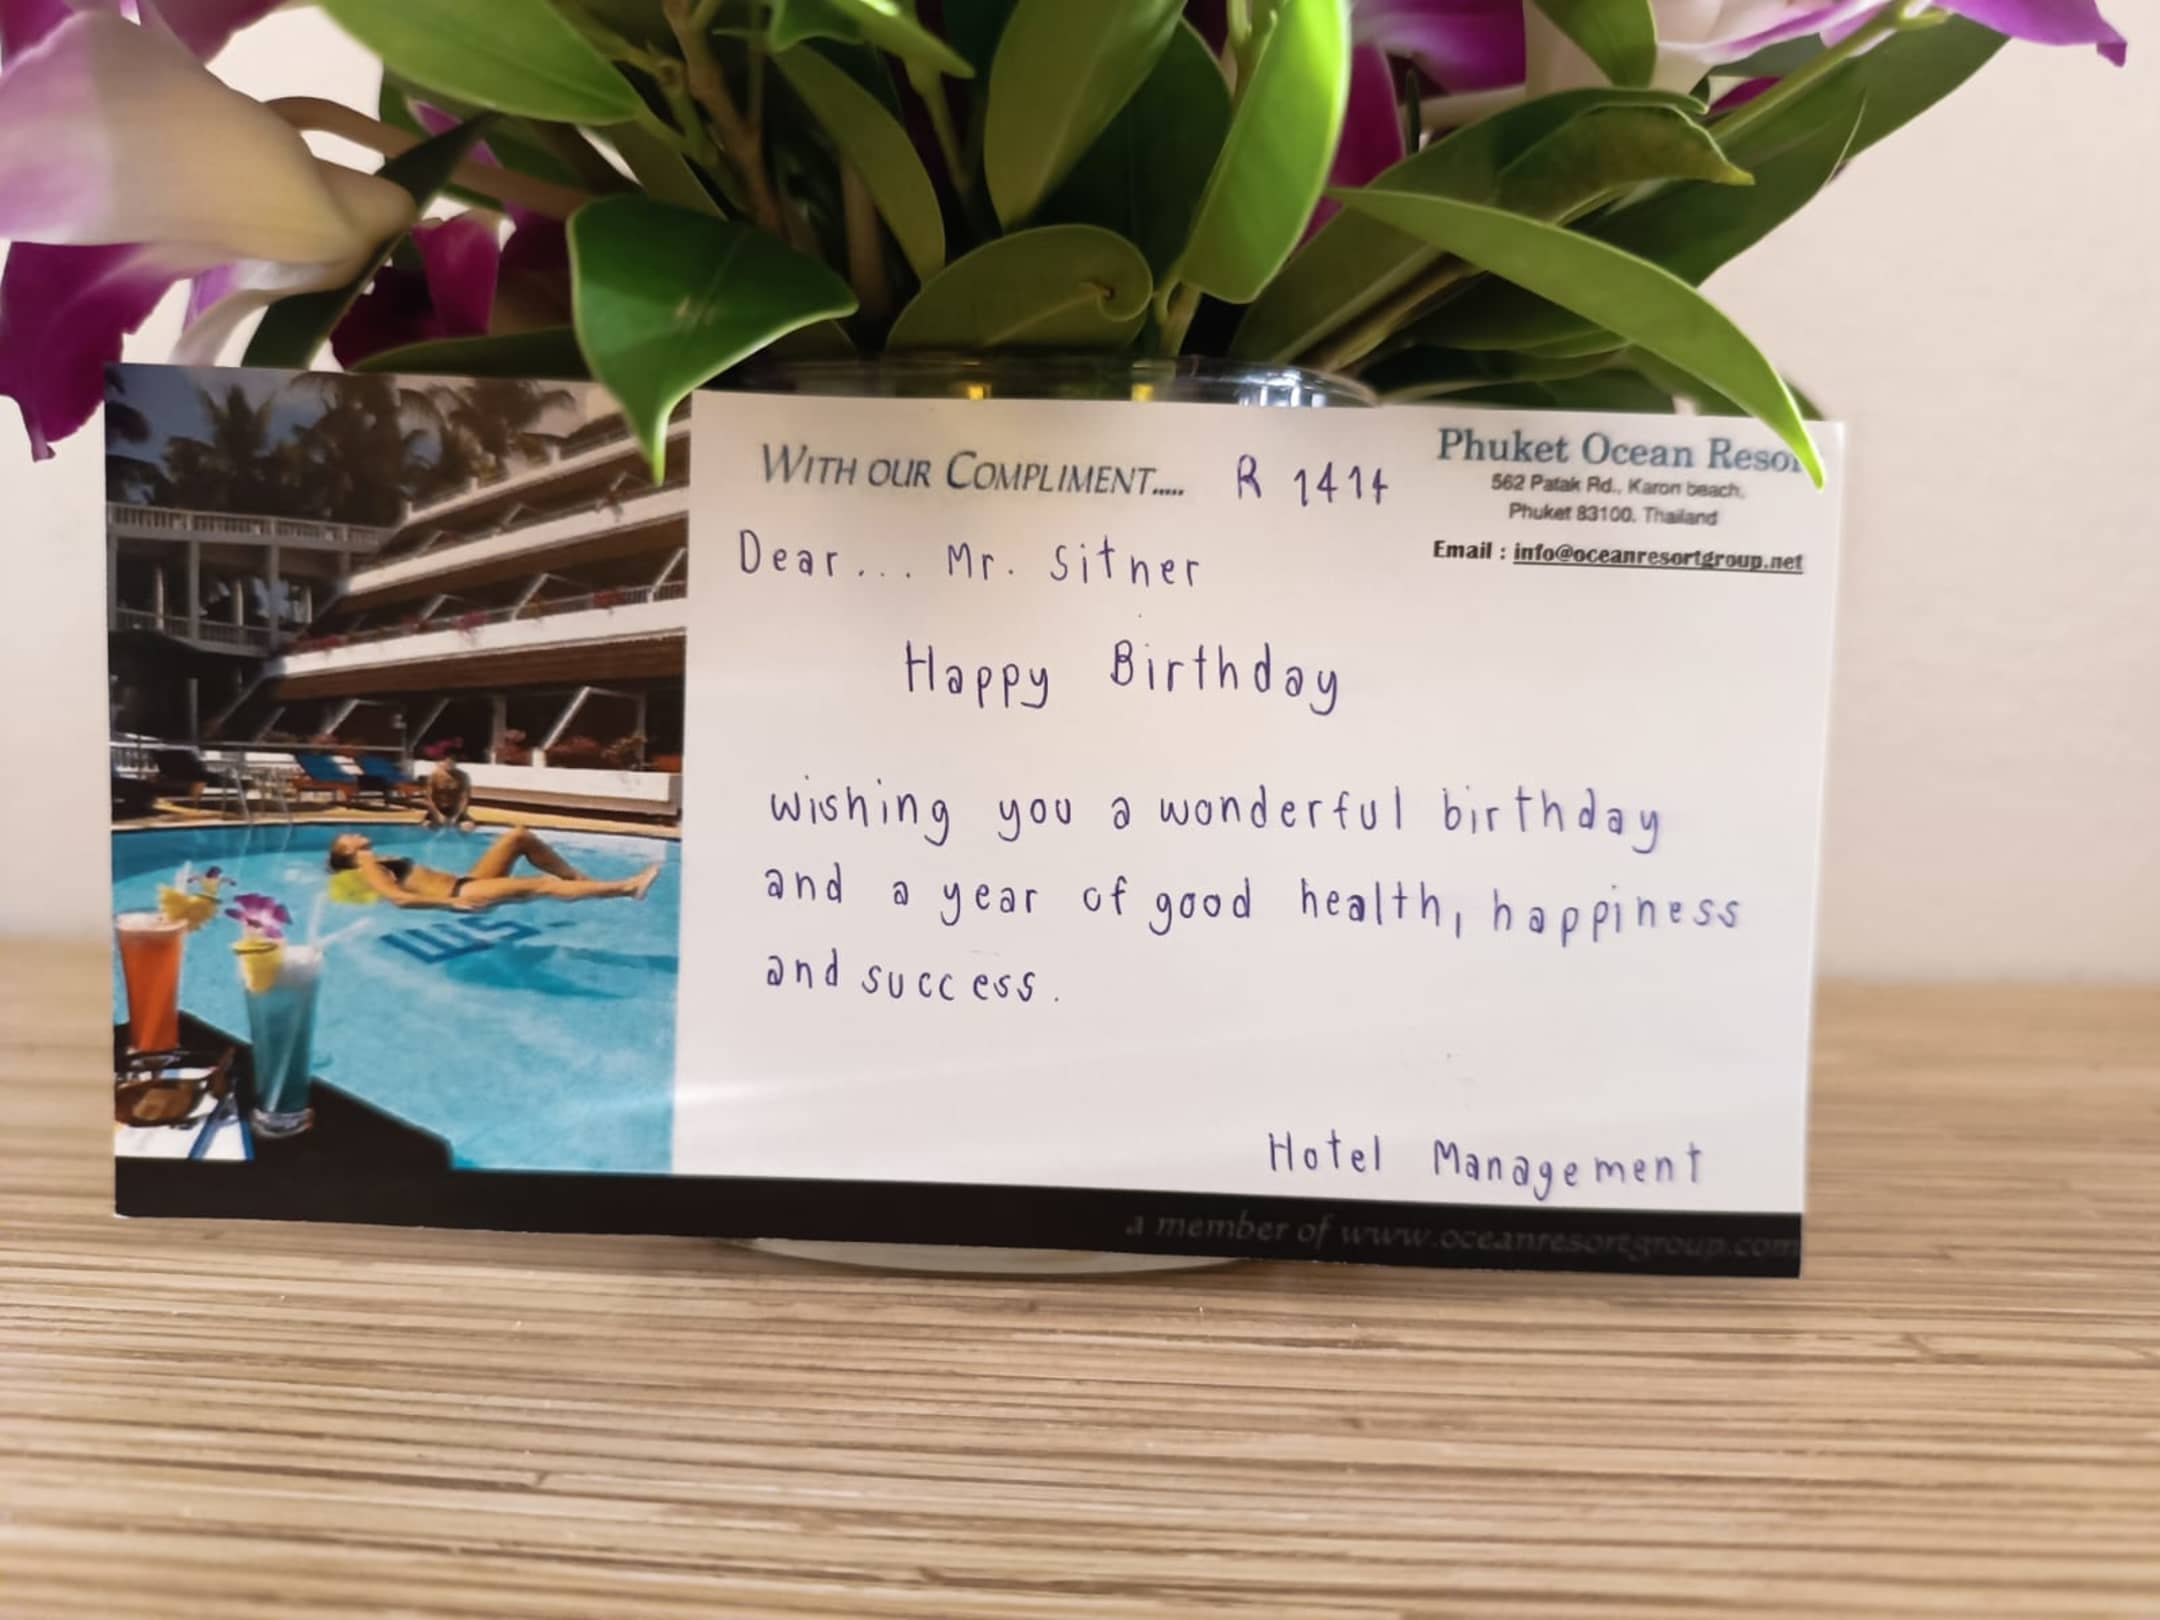 WITH OUR COMPLIMENT.....
R 1414
Phuket Ocean Resor
562 Patak Rd., Karon beach,
Phuket 83100. Thailand
Email : info@oceanresortgroup.net
Dear... Mr. Sitner
Happy Birthday
wishing you a wonderful birthday
and a year of good health, happiness
and success.
Hotel Management
a member of www.oceanresortgroup.com